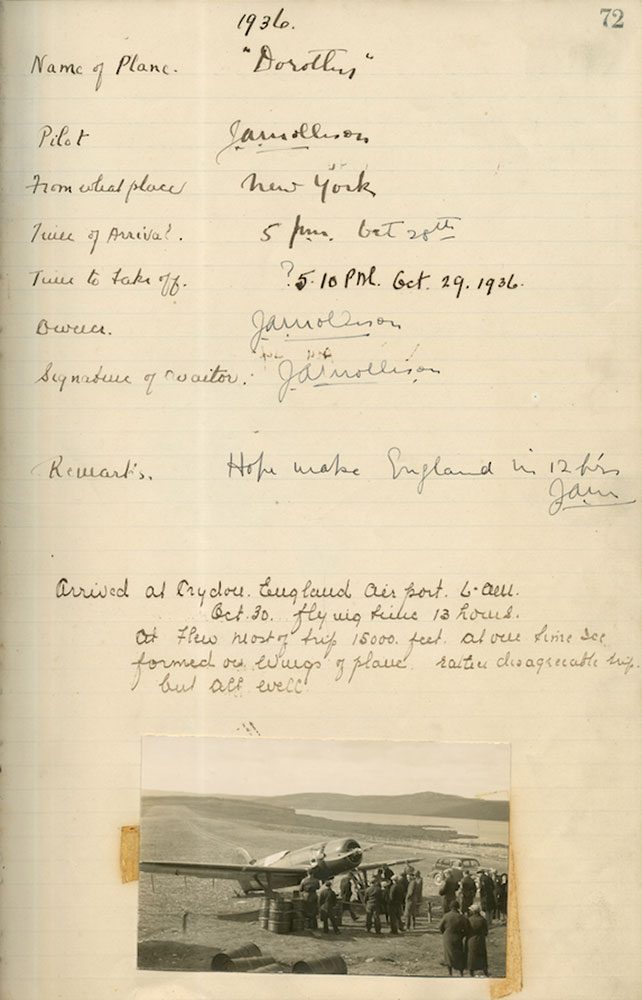 1936.
72
Name of Plane. "Dorothy"
Pilot JAMollison
From what place New York
Time of Arrival. 5 pm. Oct 28th
Time to take off. ? 5.10 PM. Oct. 29. 1936.
Owner. JAMollison
Signature of Visitor. JAMollison
Remarks. Hope make England in 12 hrs
JAM
Arrived at Crydon. England Air port. 6. am.
Oct. 30. flying time 13 hours.
At Flew most of trip 15000. feet. at one time Ice
formed on Wings of plane. rather disagreeable trip.
but all well.